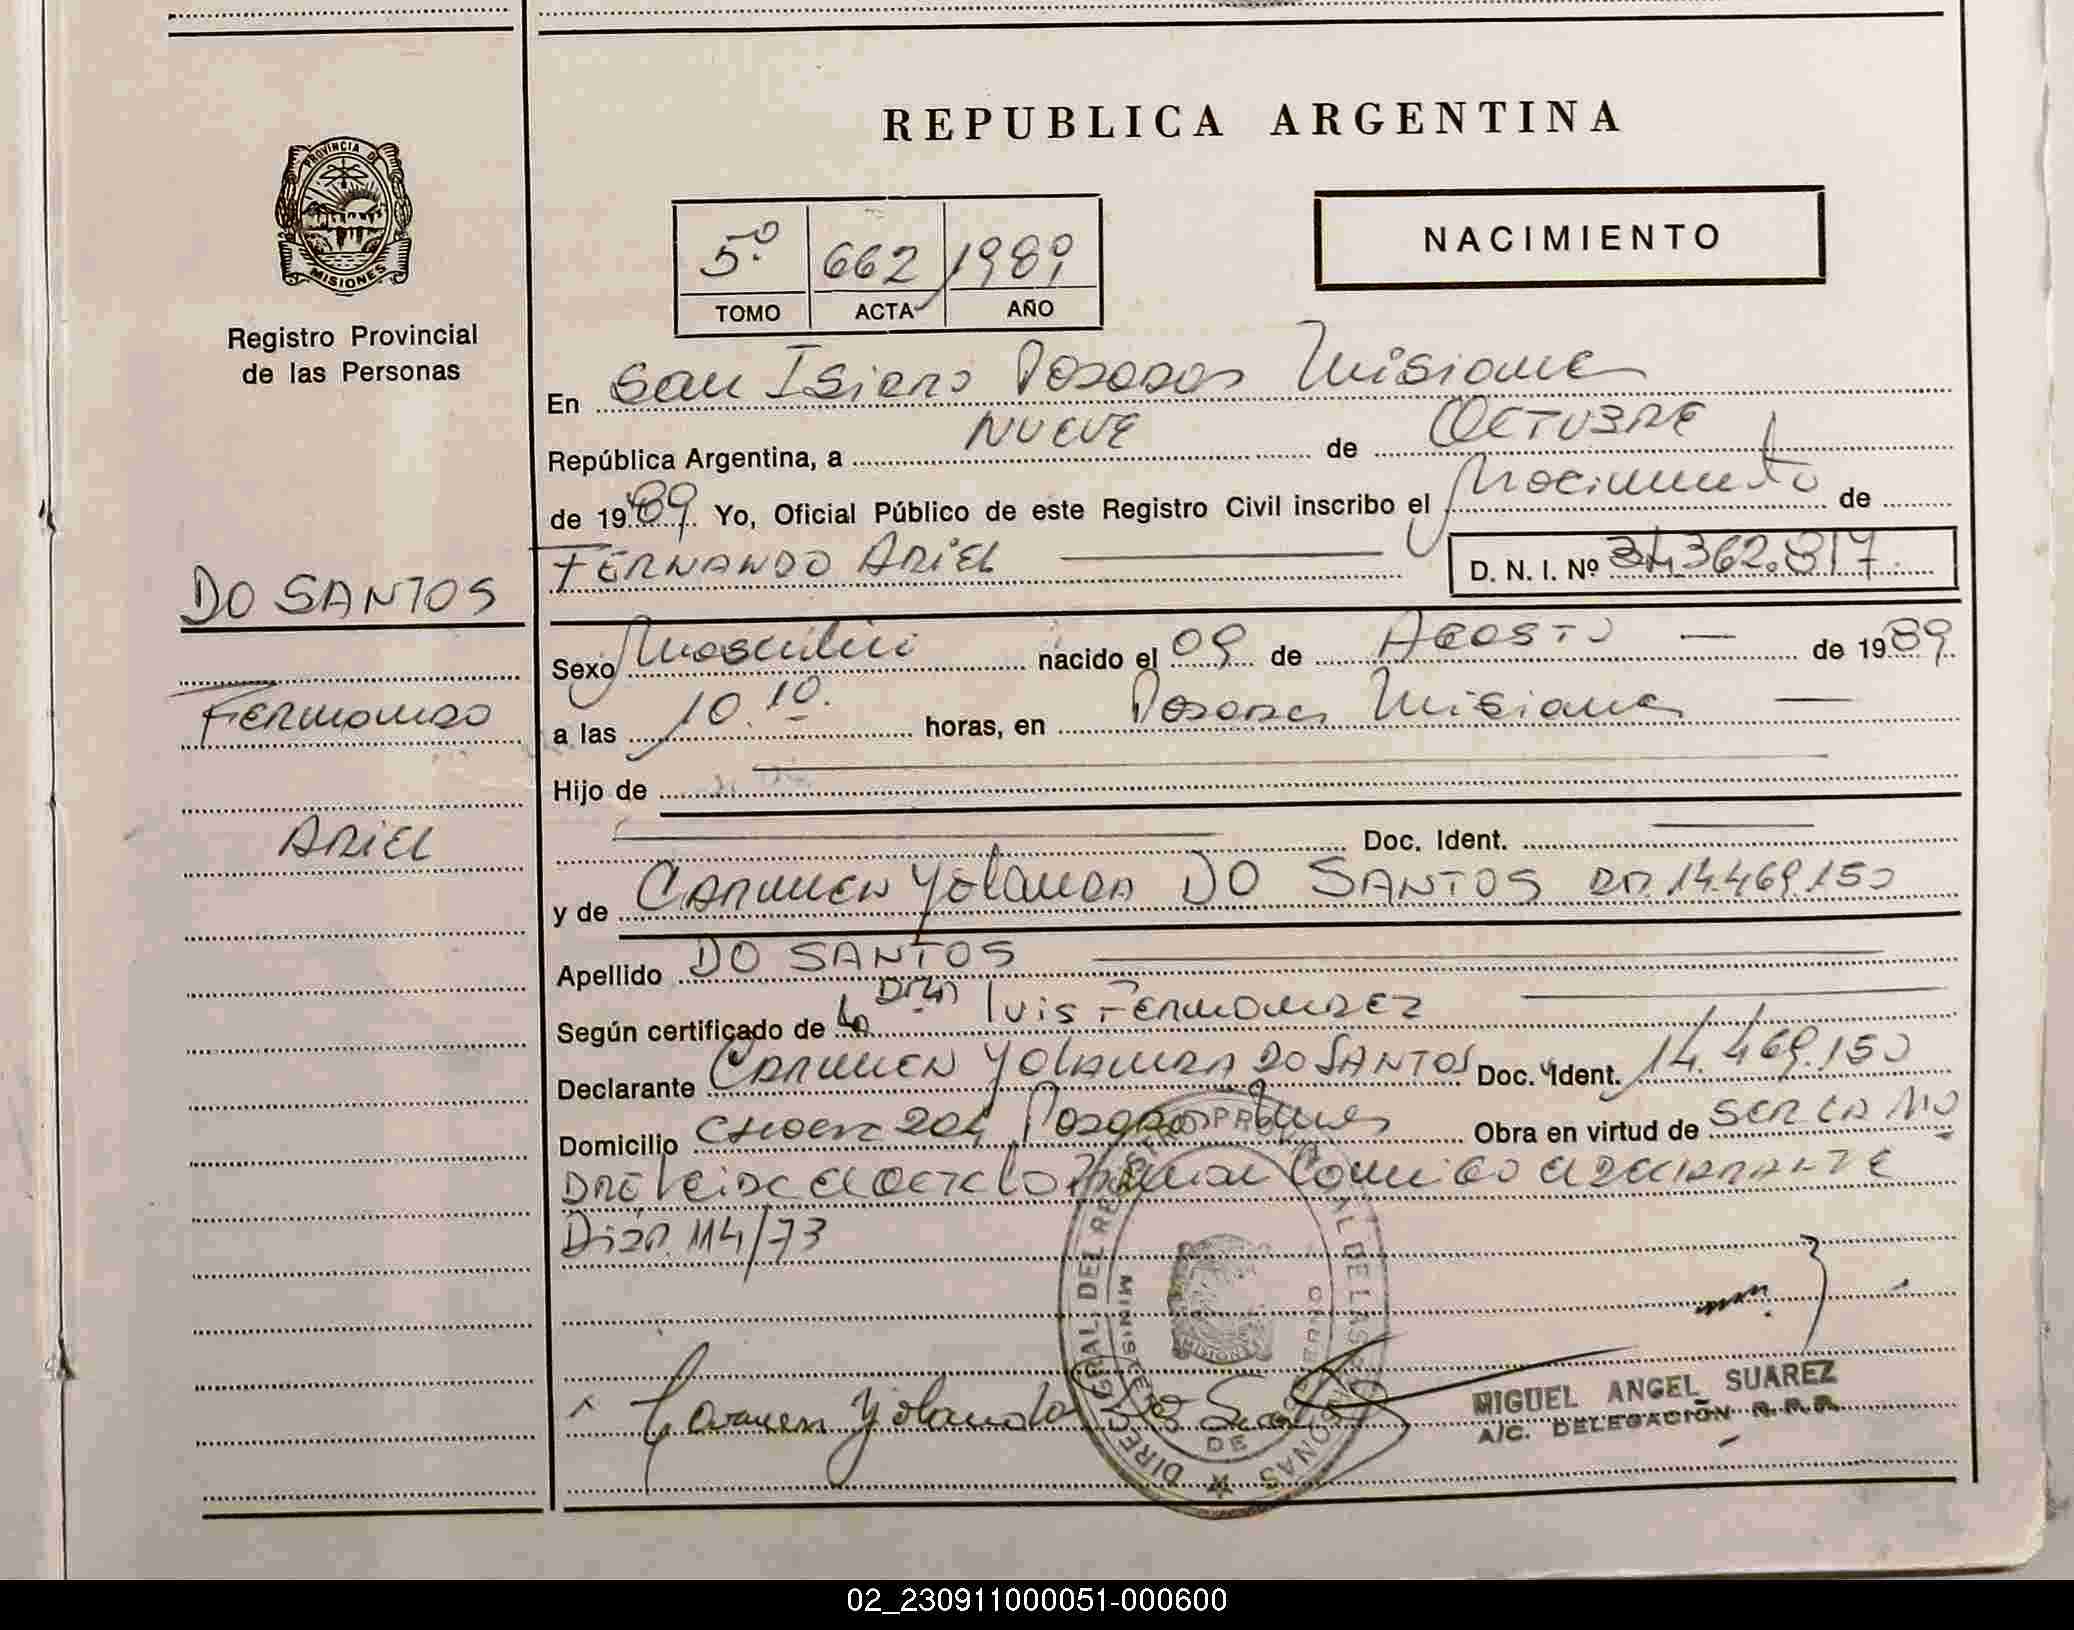 REPUBLICA ARGENTINA
PROVINCIA DE
MISIONES
Registro Provincial
de las Personas
5º 662 1989
TOMO ACTA AÑO
NACIMIENTO
En San Isidro Posadas Misiones
República Argentina, a NUEVE de OCTUBRE
de 1989 Yo, Oficial Público de este Registro Civil inscribo el Nacimiento de
FERNANDO ARIEL D. N. I. Nº 34.362.817
DO SANTOS
Fernando
ARIEL
Sexo Masculino nacido el 09 de AGOSTO de 1989
a las 10.10. horas, en Posadas Misiones
Hijo de
Doc. Ident.
y de CARMEN YOLANDA DO SANTOS 14.469.150
Apellido DO SANTOS
Según certificado de Luis FERNANDEZ
Declarante CARMEN YOLANDA DO SANTOS Doc. Ident. 14.469.150
Domicilio 204 Posadas Obra en virtud de SER LA MA
DRE Leida el acta La Firma Conmigo el DECLARANTE
114/73
Carmen Yolanda Do Santos
MIGUEL ANGEL SUAREZ
A/C. DELEGACIÓN R.P.P.
02_230911000051-000600